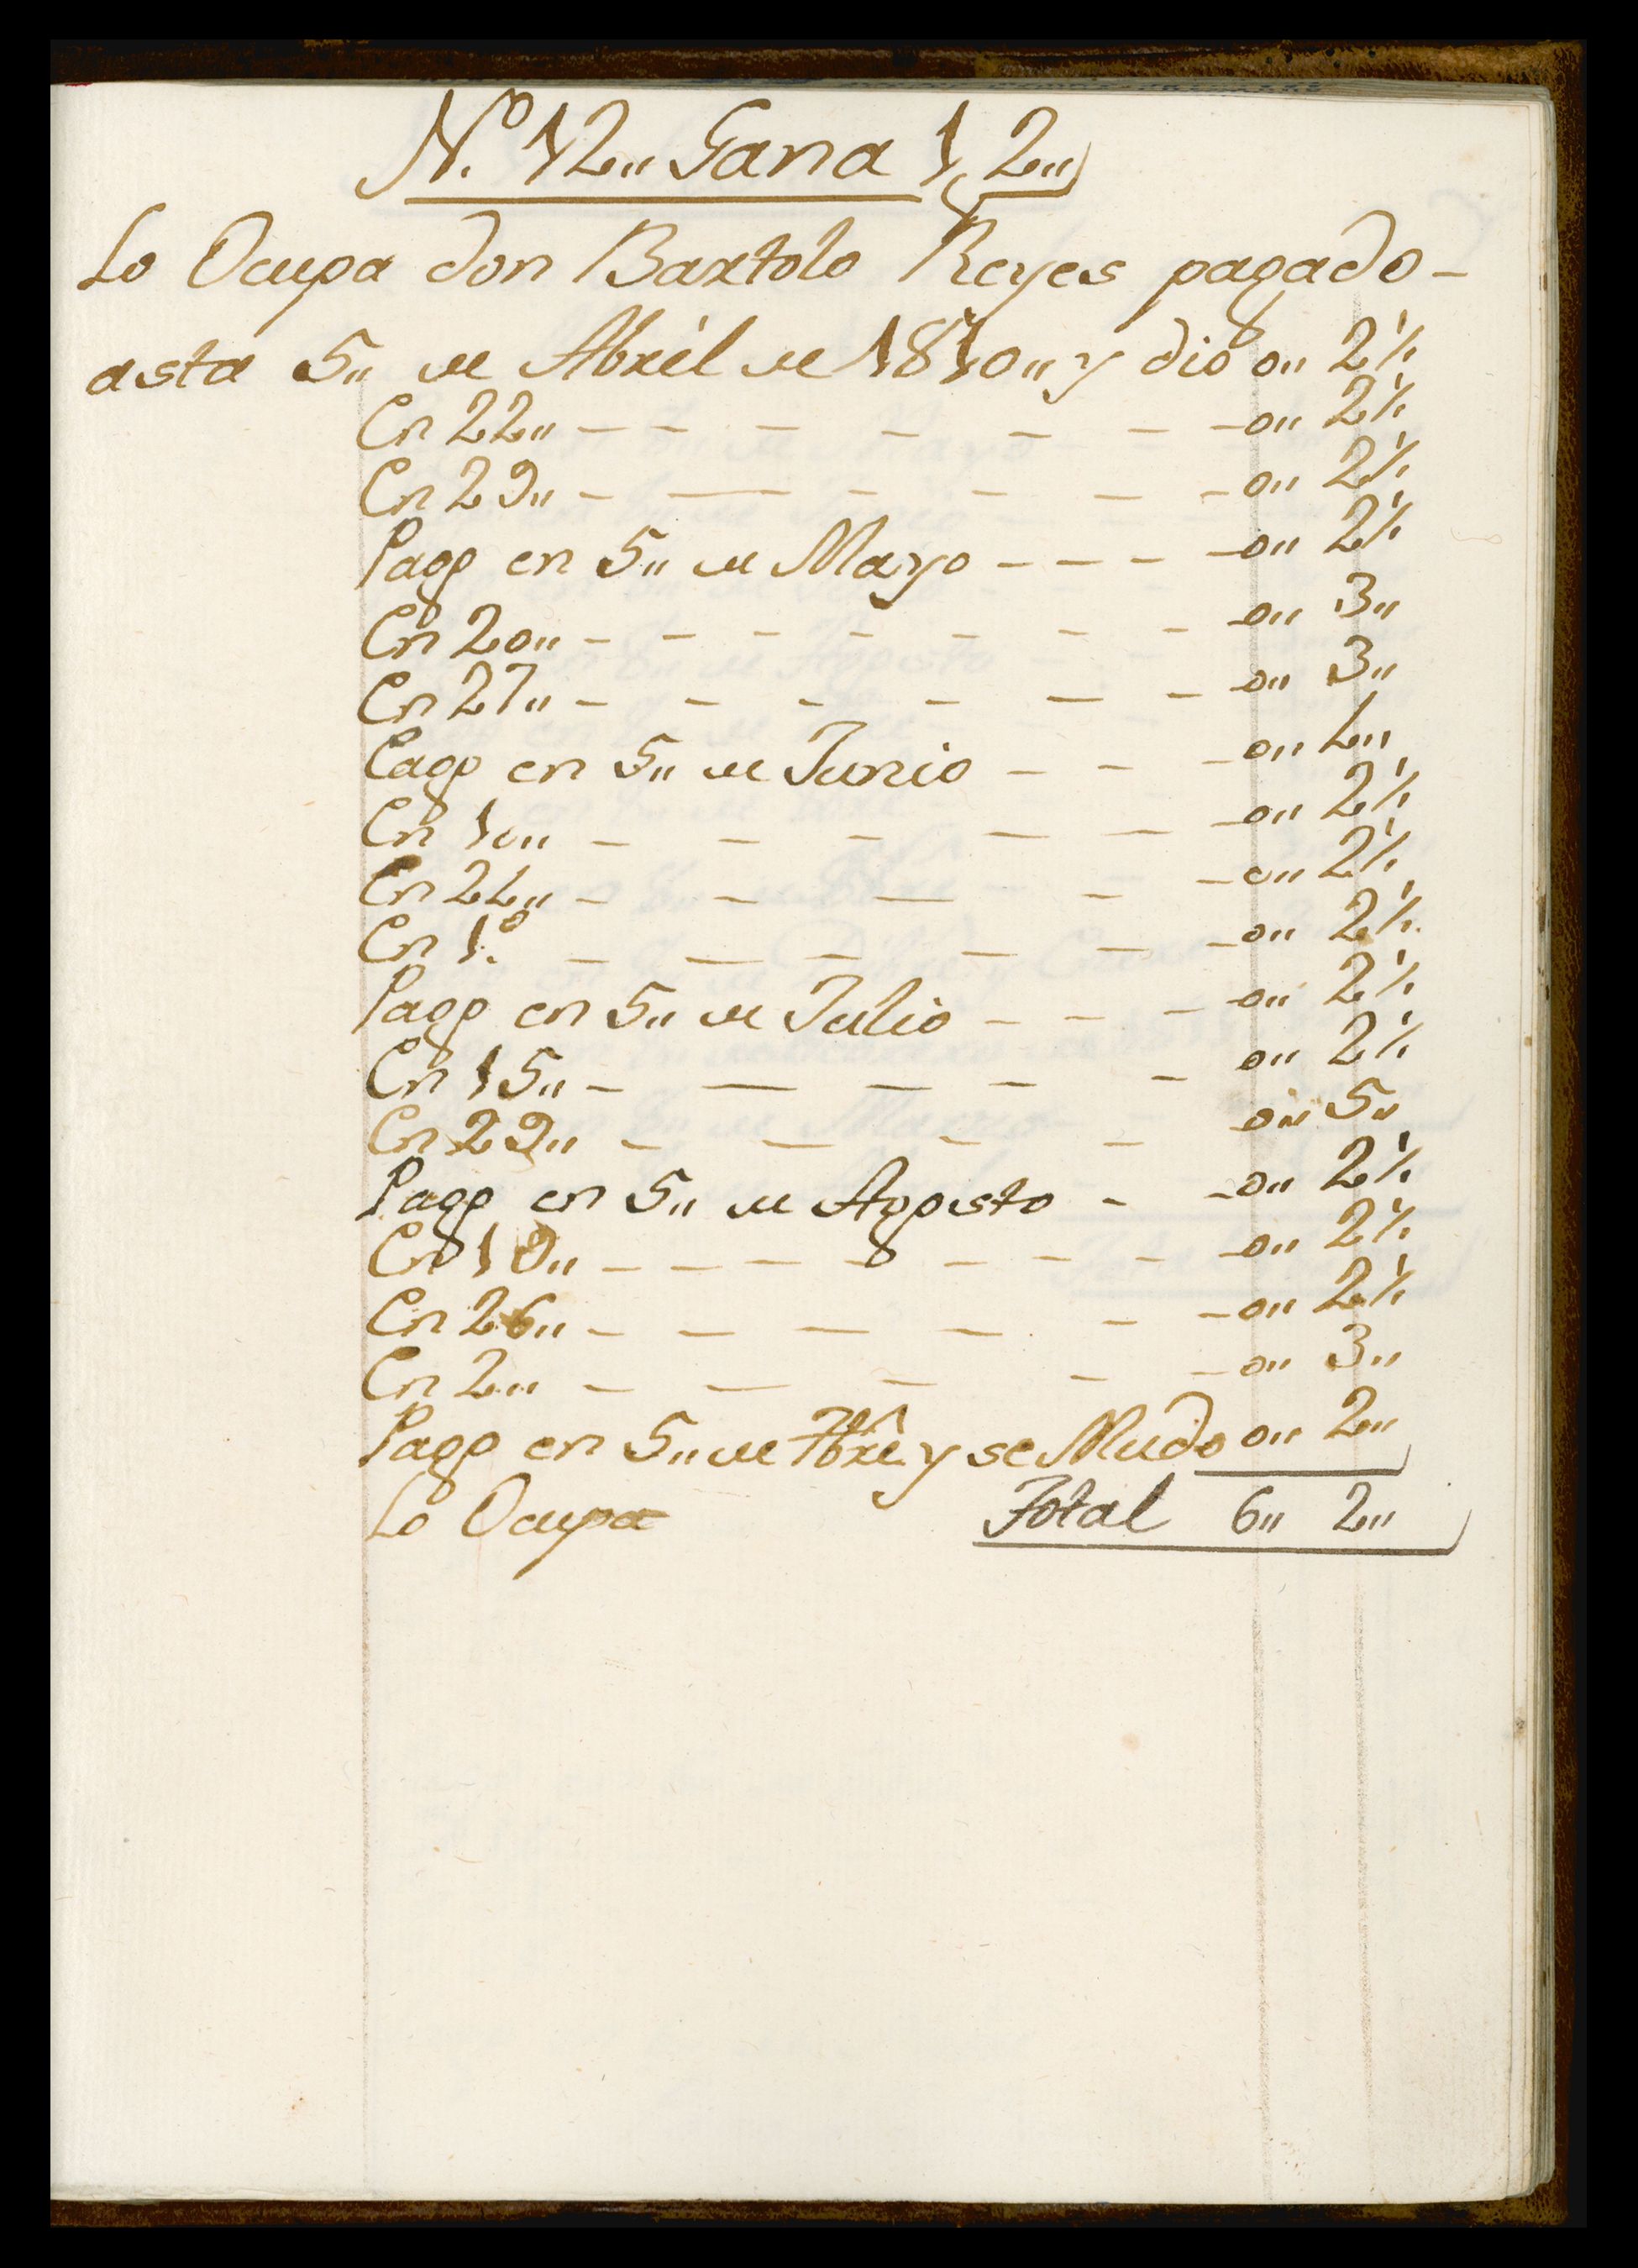 N.º 12,, Gana 1, 2,,
Lo Ocupa don Bartolo Reyes pagado-
asta 5,, de Abril de 1810,, y dio 0,, 2½
En 22,, - - - - - - - 0,, 2½
En 29,, - - - - - - 0,, 2½
Pago en 5,, de Mayo - - - - 0,, 2½
En 20,, - - - - - - - 0,, 3,,
En 27,, - - - - - - 0,, 3,,
Pago en 5,, de Junio - - - 0,, 4,,
En 10,, - - - - - - 0,, 2½
En 24,, - - - - - 0,, 2½
En 1.º - - - - - - 0,, 2½
Pago en 5,, de Julio - - - 0,, 2½
En 15,, - - - - - 0,, 2½
En 29,, - - - - 0,, 5,,
Pago en 5,, de Agosto - - 0,, 2½
En 19,, - - - - - - - 0,, 2½
En 26,, - - - - - - 0,, 2½
En 2,, - - - - - 0,, 3,,
Pago en 5,, de 7bre. y se Mudo 0,, 2,,
Lo Ocupa Total 6,, 2,,